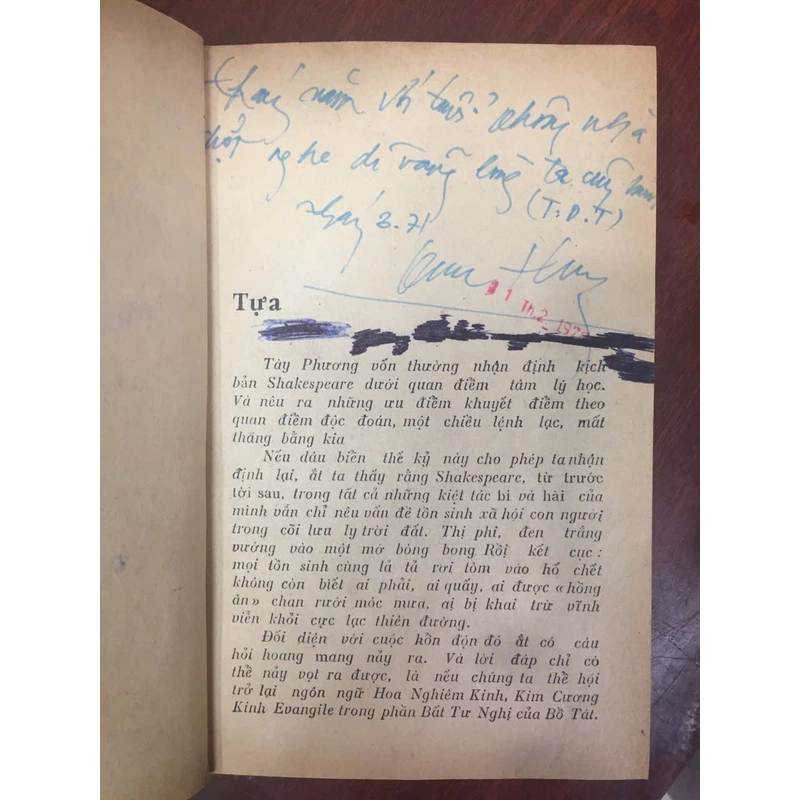 tháng năm với tuổi không nhà
nghe dĩ vãng lòng ta
(T.D.T)
3.71
1 Th.2 197
Tựa
Tây Phương vốn thường nhận định kịch
bản Shakespeare dưới quan điểm tâm lý học.
Và nêu ra những ưu điểm khuyết điểm theo
quan điểm độc đoán, một chiều lệnh lạc, mất
thăng bằng kia
Nếu dâu biển thế kỷ này cho phép ta nhận
định lại, ắt ta thấy rằng Shakespeare, từ trước
tới sau, trong tất cả những kiệt tác bi và hài của
mình vẫn chỉ nêu vấn đề tồn sinh xã hội con người
trong cõi lưu ly trời đất. Thị phi, đen trắng
vướng vào một mớ bòng bong Rồi kết cục :
mọi tồn sinh cùng lả tả rơi tõm vào hố chết
không còn biết ai phải, ai quấy, ai được «hồng
ân» chan rưới móc mưa, ai bị khai trừ vĩnh
viễn khỏi cực lạc thiên đường.
Đối diện với cuộc hồn độn đó ắt có câu
hỏi hoang mang nảy ra. Và lời đáp chỉ có
thể nảy vọt ra được, là nếu chúng ta thể hội
trở lại ngôn ngữ Hoa Nghiêm Kinh, Kim Cương
Kinh Evangile trong phần Bất Tư Nghị của Bồ Tát.